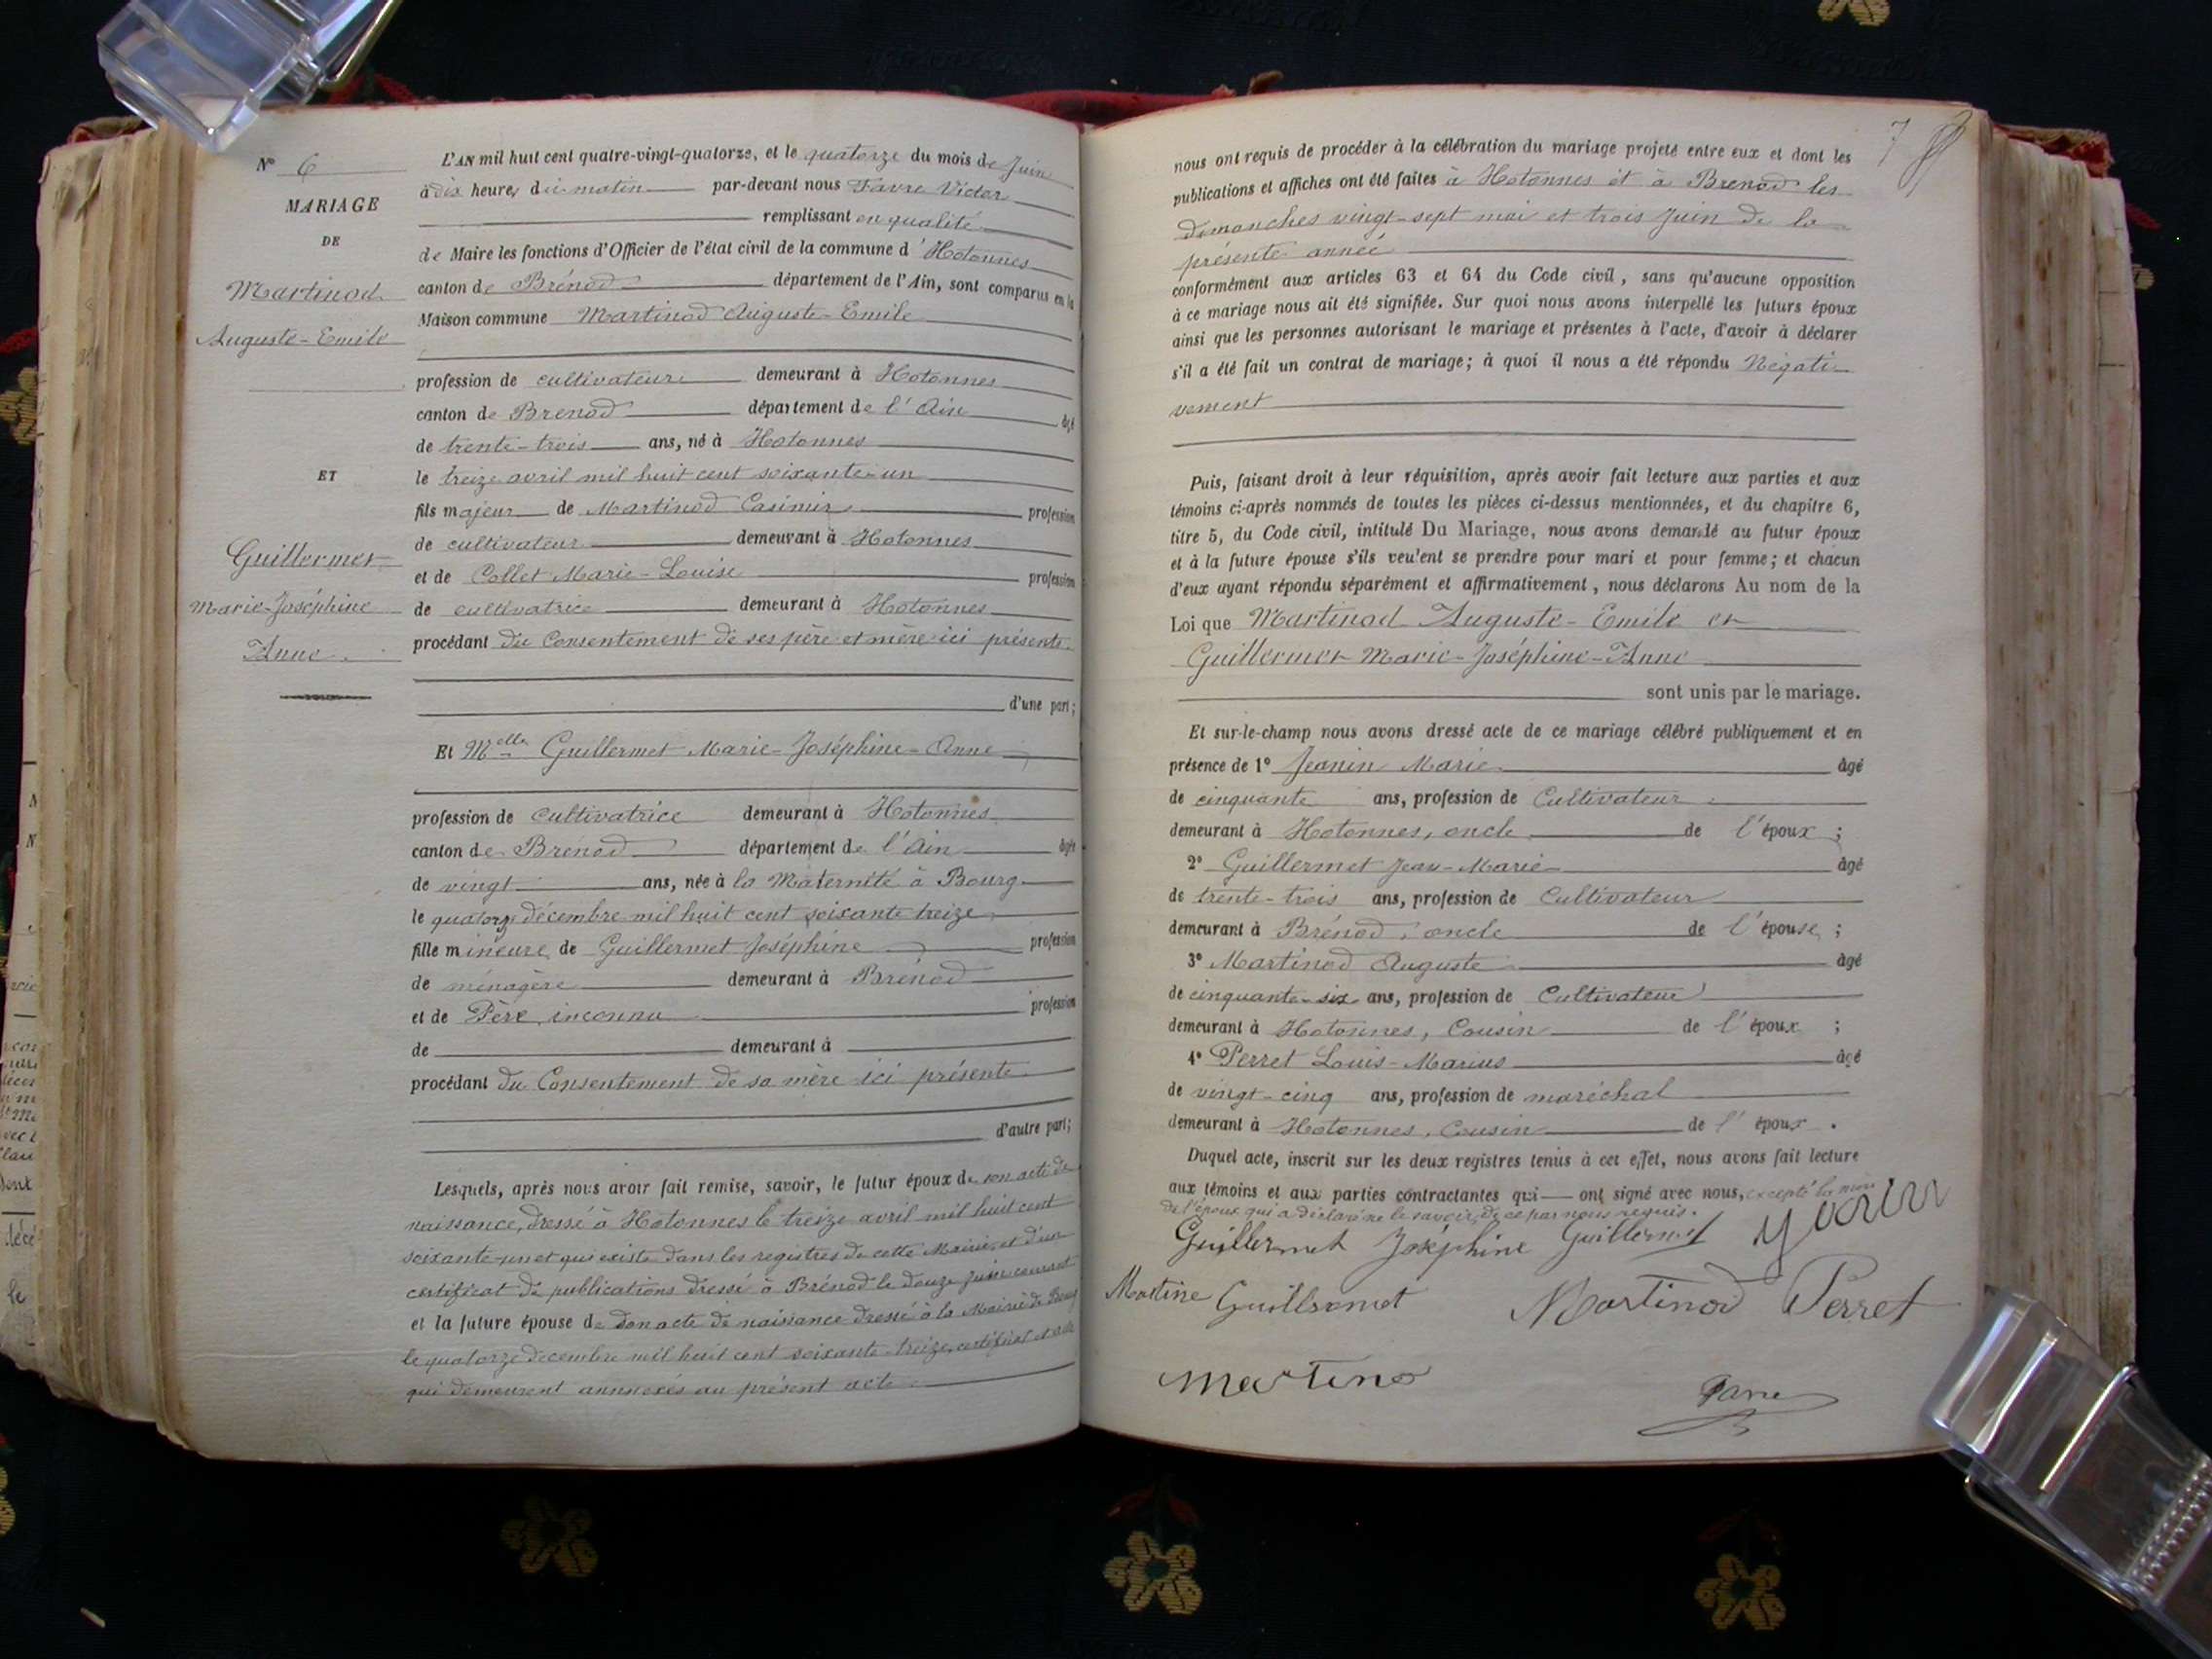 N° 6
MARIAGE
DE
Martinod
Auguste-Emile
ET
Guillermet
Marie-Joséphine
Anne
L'AN mil huit cent quatre-vingt-quatorze, et le quatorze du mois de Juin
à dix heures du matin par-devant nous Favre Victor
remplissant en qualité
de Maire les fonctions d'Officier de l'état civil de la commune d'Hotonnes
canton de Brénod département de l'Ain, sont comparus en la
Maison commune Martinod Auguste-Emile
profession de cultivateur demeurant à Hotonnes
canton de Brenod département de l'Ain âgé
de trente-trois ans, né à Hotonnes
le treize avril mil huit cent soixante-un
fils majeur de Martinod Casimir profession
de cultivateur demeurant à Hotonnes
et de Collet Marie-Louise profession
de cultivatrice demeurant à Hotonnes
procédant du Consentement de ses père et mère ici présents.
d'une part;
Et Melle Guillermet Marie-Joséphine-Anne
profession de cultivatrice demeurant à Hotonnes
canton de Brenod département de l'Ain âgée
de vingt ans, née à la Maternité à Bourg
le quatorze décembre mil huit cent soixante treize
fille mineure de Guillermet Joséphine profession
de ménagère demeurant à Brénod
et de Père inconnu profession
de demeurant à
procédant du Consentement de sa mère ici présente
d'autre part;
Lesquels, après nous avoir fait remise, savoir, le futur époux de son acte de
naissance, dressé à Hotonnes le treize avril mil huit cent
soixante-un et qui existe dans les registres de cette Mairie et d'un
certificat de publications dressé à Brénod le douze juin courant
et la future épouse de son acte de naissance dressé à la Mairie de Bourg
le quatorze décembre mil huit cent soixante-treize, certificat et acte
qui demeurent annexés au présent acte.
7
nous ont requis de procéder à la célébration du mariage projeté entre eux et dont les
publications et affiches ont été faites à Hotonnes et à Brenod les
dimanches vingt-sept mai et trois Juin de la
présente année
conformément aux articles 63 et 64 du Code civil, sans qu'aucune opposition
à ce mariage nous ait été signifiée. Sur quoi nous avons interpellé les futurs époux
ainsi que les personnes autorisant le mariage et présentes à l'acte, d'avoir à déclarer
s'il a été fait un contrat de mariage; à quoi il nous a été répondu Négati-
vement
Puis, faisant droit à leur réquisition, après avoir fait lecture aux parties et aux
témoins ci-après nommés de toutes les pièces ci-dessus mentionnées, et du chapitre 6,
titre 5, du Code civil, intitulé Du Mariage, nous avons demandé au futur époux
et à la future épouse s'ils veulent se prendre pour mari et pour femme; et chacun
d'eux ayant répondu séparément et affirmativement, nous déclarons Au nom de la
Loi que Martinod Auguste-Emile et
Guillermet Marie-Joséphine-Anne
sont unis par le mariage.
Et sur-le-champ nous avons dressé acte de ce mariage célébré publiquement et en
présence de 1° Jeanin Marie âgé
de cinquante ans, profession de Cultivateur
demeurant à Hotonnes, oncle de l'époux;
2° Guillermet Jean-Marie âgé
de trente-trois ans, profession de Cultivateur
demeurant à Brénod, oncle de l'épouse;
3° Martinod Auguste âgé
de cinquante-six ans, profession de Cultivateur
demeurant à Hotonnes, Cousin de l'époux;
4° Perret Louis-Marius âgé
de vingt-cinq ans, profession de maréchal
demeurant à Hotonnes, Cousin de l'époux.
Duquel acte, inscrit sur les deux registres tenus à cet effet, nous avons fait lecture
aux témoins et aux parties contractantes qui ont signé avec nous, excepté la mère
de l'époux qui a déclaré ne le savoir, de ce par nous requis.
Guillermet Joséphine Guillermet
Martino Guillermet Martinod Perret
Martino Favre